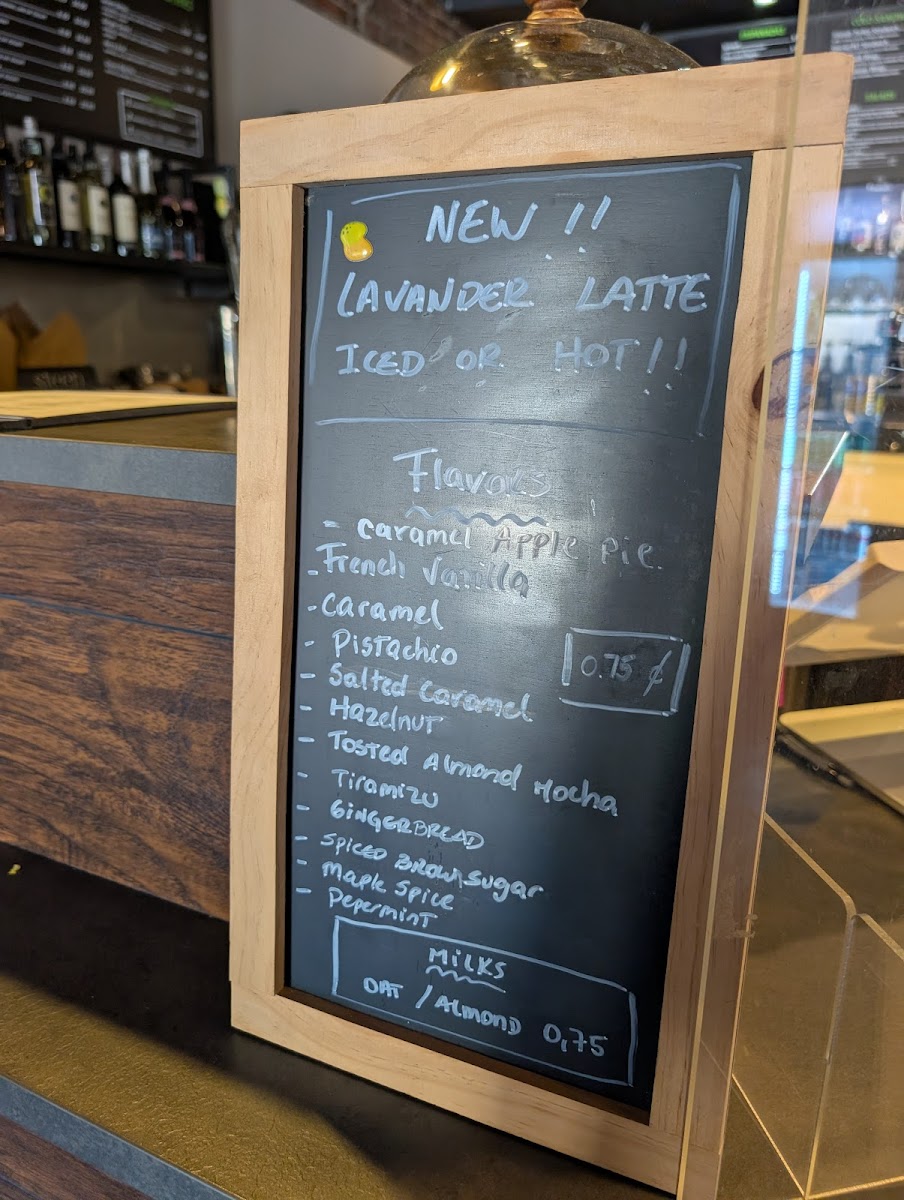 NEW !!
LAVANDER LATTE
ICED OR HOT!!
Flavors
- Caramel Apple Pie.
- French Vanilla
- Caramel
- Pistachio
0.75 ¢
- Salted Caramel
- Hazelnut
- Tosted Almond Mocha
- Tiramizu
- GINGERBREAD
- Spiced Brown Sugar
- Maple Spice
- Pepermint
MILKS
OAT / ALMOND 0,75